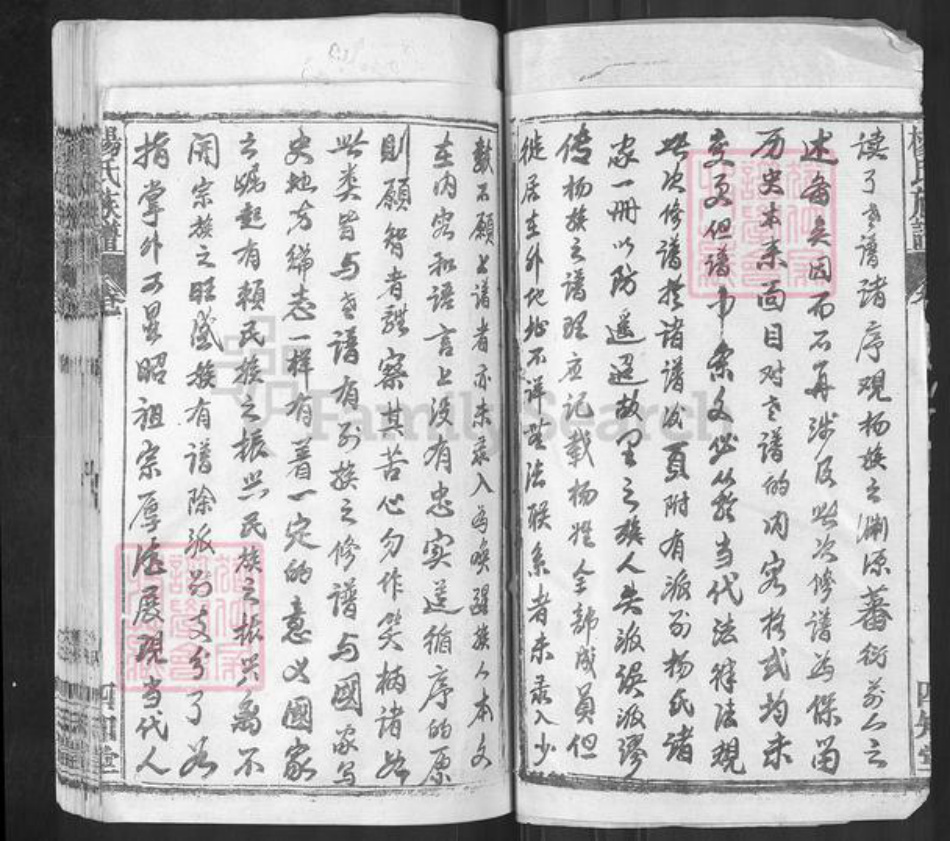 读了老谱诸序观杨族之渊源蕃衍前人之
述备矣因而不再涉及此次修谱为保留
历史本来面目对老谱的内容格式均未
变更但谱中条文必从于当代法律法规
此次修谱于诸谱后页附有派别杨氏诸
家一册以防遥迢故里之族人失派误派谬
传杨族之谱理应记载杨姓全部成员但
徙居在外地址不详无法联系者未录入少
数不愿上谱者亦未录入为唤醒族人本文
在内容和语言上没有忠实遵循序的原
则愿智者谅察其苦心勿作笑柄诸如
此类皆与老谱有别族之修谱与国家写
史地方编志一样有着一定的意义国家
之崛起有赖民族之振兴民族之振兴离不
开宗族之旺盛族有谱除派别支分了如
指掌外可显昭祖宗厚德展现当代人
楊氏族譜
四知堂
FamilySearch